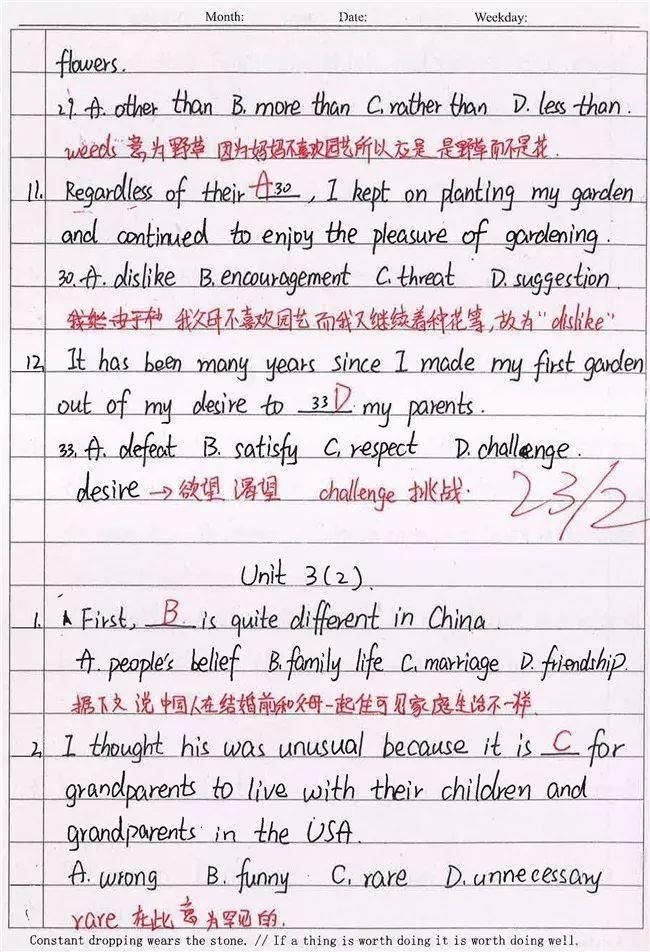 Month: Date: Weekday:
flowers.
29. A. other than B. more than C. rather than D. less than.
weeds 意为野草 因为妈妈不喜欢园艺所以应是 是野草而不是花.
11. Regardless of their A 30 , I kept on planting my garden
and continued to enjoy the pleasure of gardening.
30. A. dislike B. encouragement C. threat D. suggestion.
我父母不喜欢园艺 而我又继续着种花等, 故为"dislike"
12. It has been many years since I made my first garden
out of my desire to 33 D my parents.
33. A. defeat B. satisfy C. respect D. challenge.
desire → 欲望 渴望 challenge 挑战.
23/2
Unit 3(2).
1. First, B is quite different in China
A. people's belief B. family life C. marriage D. friendship.
据下文 说中国人在结婚前和父母一起住可见家庭生活不一样.
2. I thought his was unusual because it is C for
grandparents to live with their children and
grandparents in the USA.
A. wrong B. funny C. rare D. unnecessary
rare 在此意为罕见的.
Constant dropping wears the stone. // If a thing is worth doing it is worth doing well.